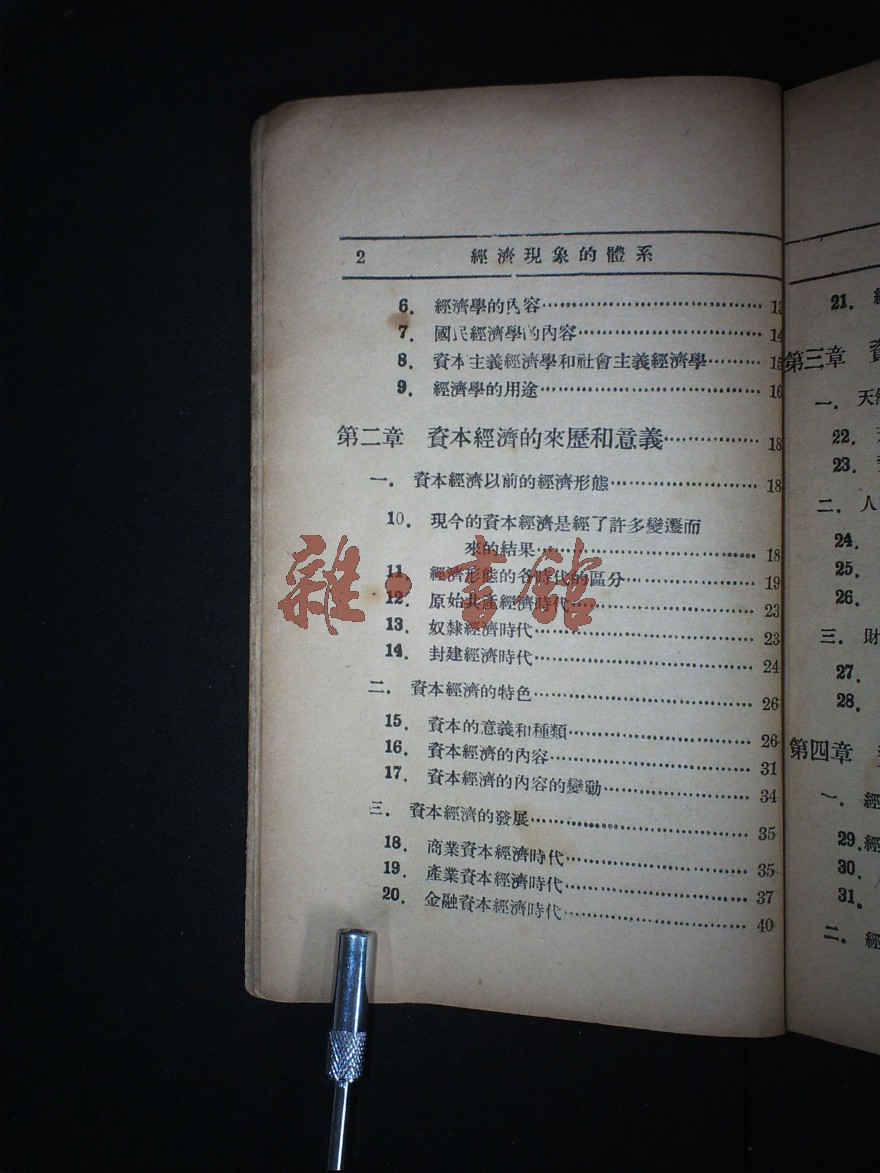 2 經濟現象的體系
6. 經濟學的內容 13
7. 國民經濟學的內容 14
8. 資本主義經濟學和社會主義經濟學 15
9. 經濟學的用途 16
第二章 資本經濟的來歷和意義 18
一. 資本經濟以前的經濟形態 18
10. 現今的資本經濟是經了許多變遷而
來的結果 18
11. 經濟形態的各時代的區分 19
12. 原始共產經濟時代 23
13. 奴隸經濟時代 23
14. 封建經濟時代 24
二. 資本經濟的特色 26
15. 資本的意義和種類 26
16. 資本經濟的內容 31
17. 資本經濟的內容的變動 34
三. 資本經濟的發展 35
18. 商業資本經濟時代 35
19. 產業資本經濟時代 37
20. 金融資本經濟時代 40
雜·書館
21. 經
第三章 資
一. 天然
22.
23.
二. 人
24.
25.
26.
三. 財
27.
28.
第四章
一. 經
29. 經
30.
31.
二. 經